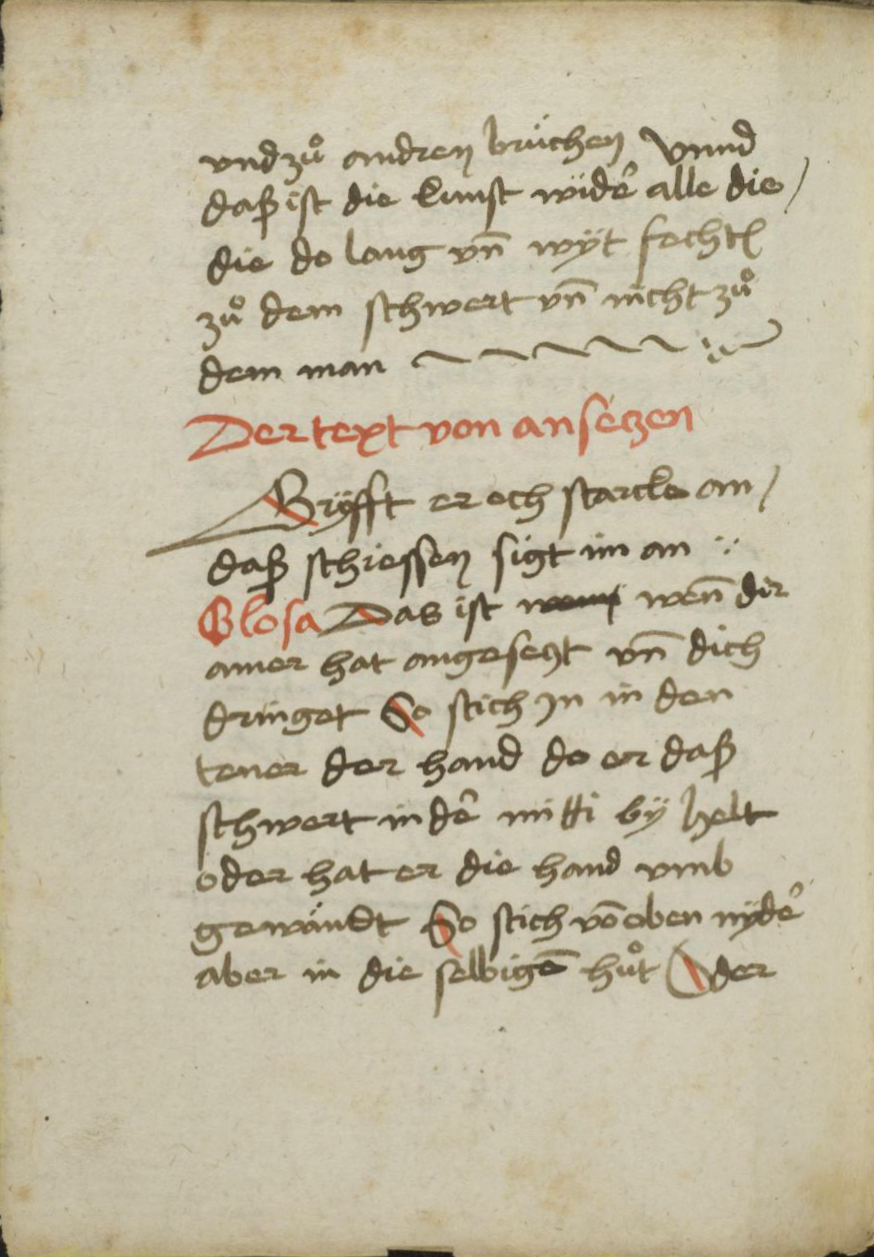 vnd zuͦ andren brüchen Vnnd
daß ist die kunst widẽ alle die /
die do lang vn̄ wÿt fechtn̄
zuͦ dem schwert vn̄ nicht zuͦ
dem man
Der text von ansetzen
Gryfft er och starcke an /
daß schiessen sigt im an
Glosa Das ist wenn̄ dir
ainer hat angesetzt vn̄ dich
dringet So stich Jn in den
tener der hand do er daß
schwert in dẽ mitti bÿ helt
oder hat er die hand vmb
gewändt So stich võ oben nÿdẽ
aber in die selbigẽ huͦt Oder